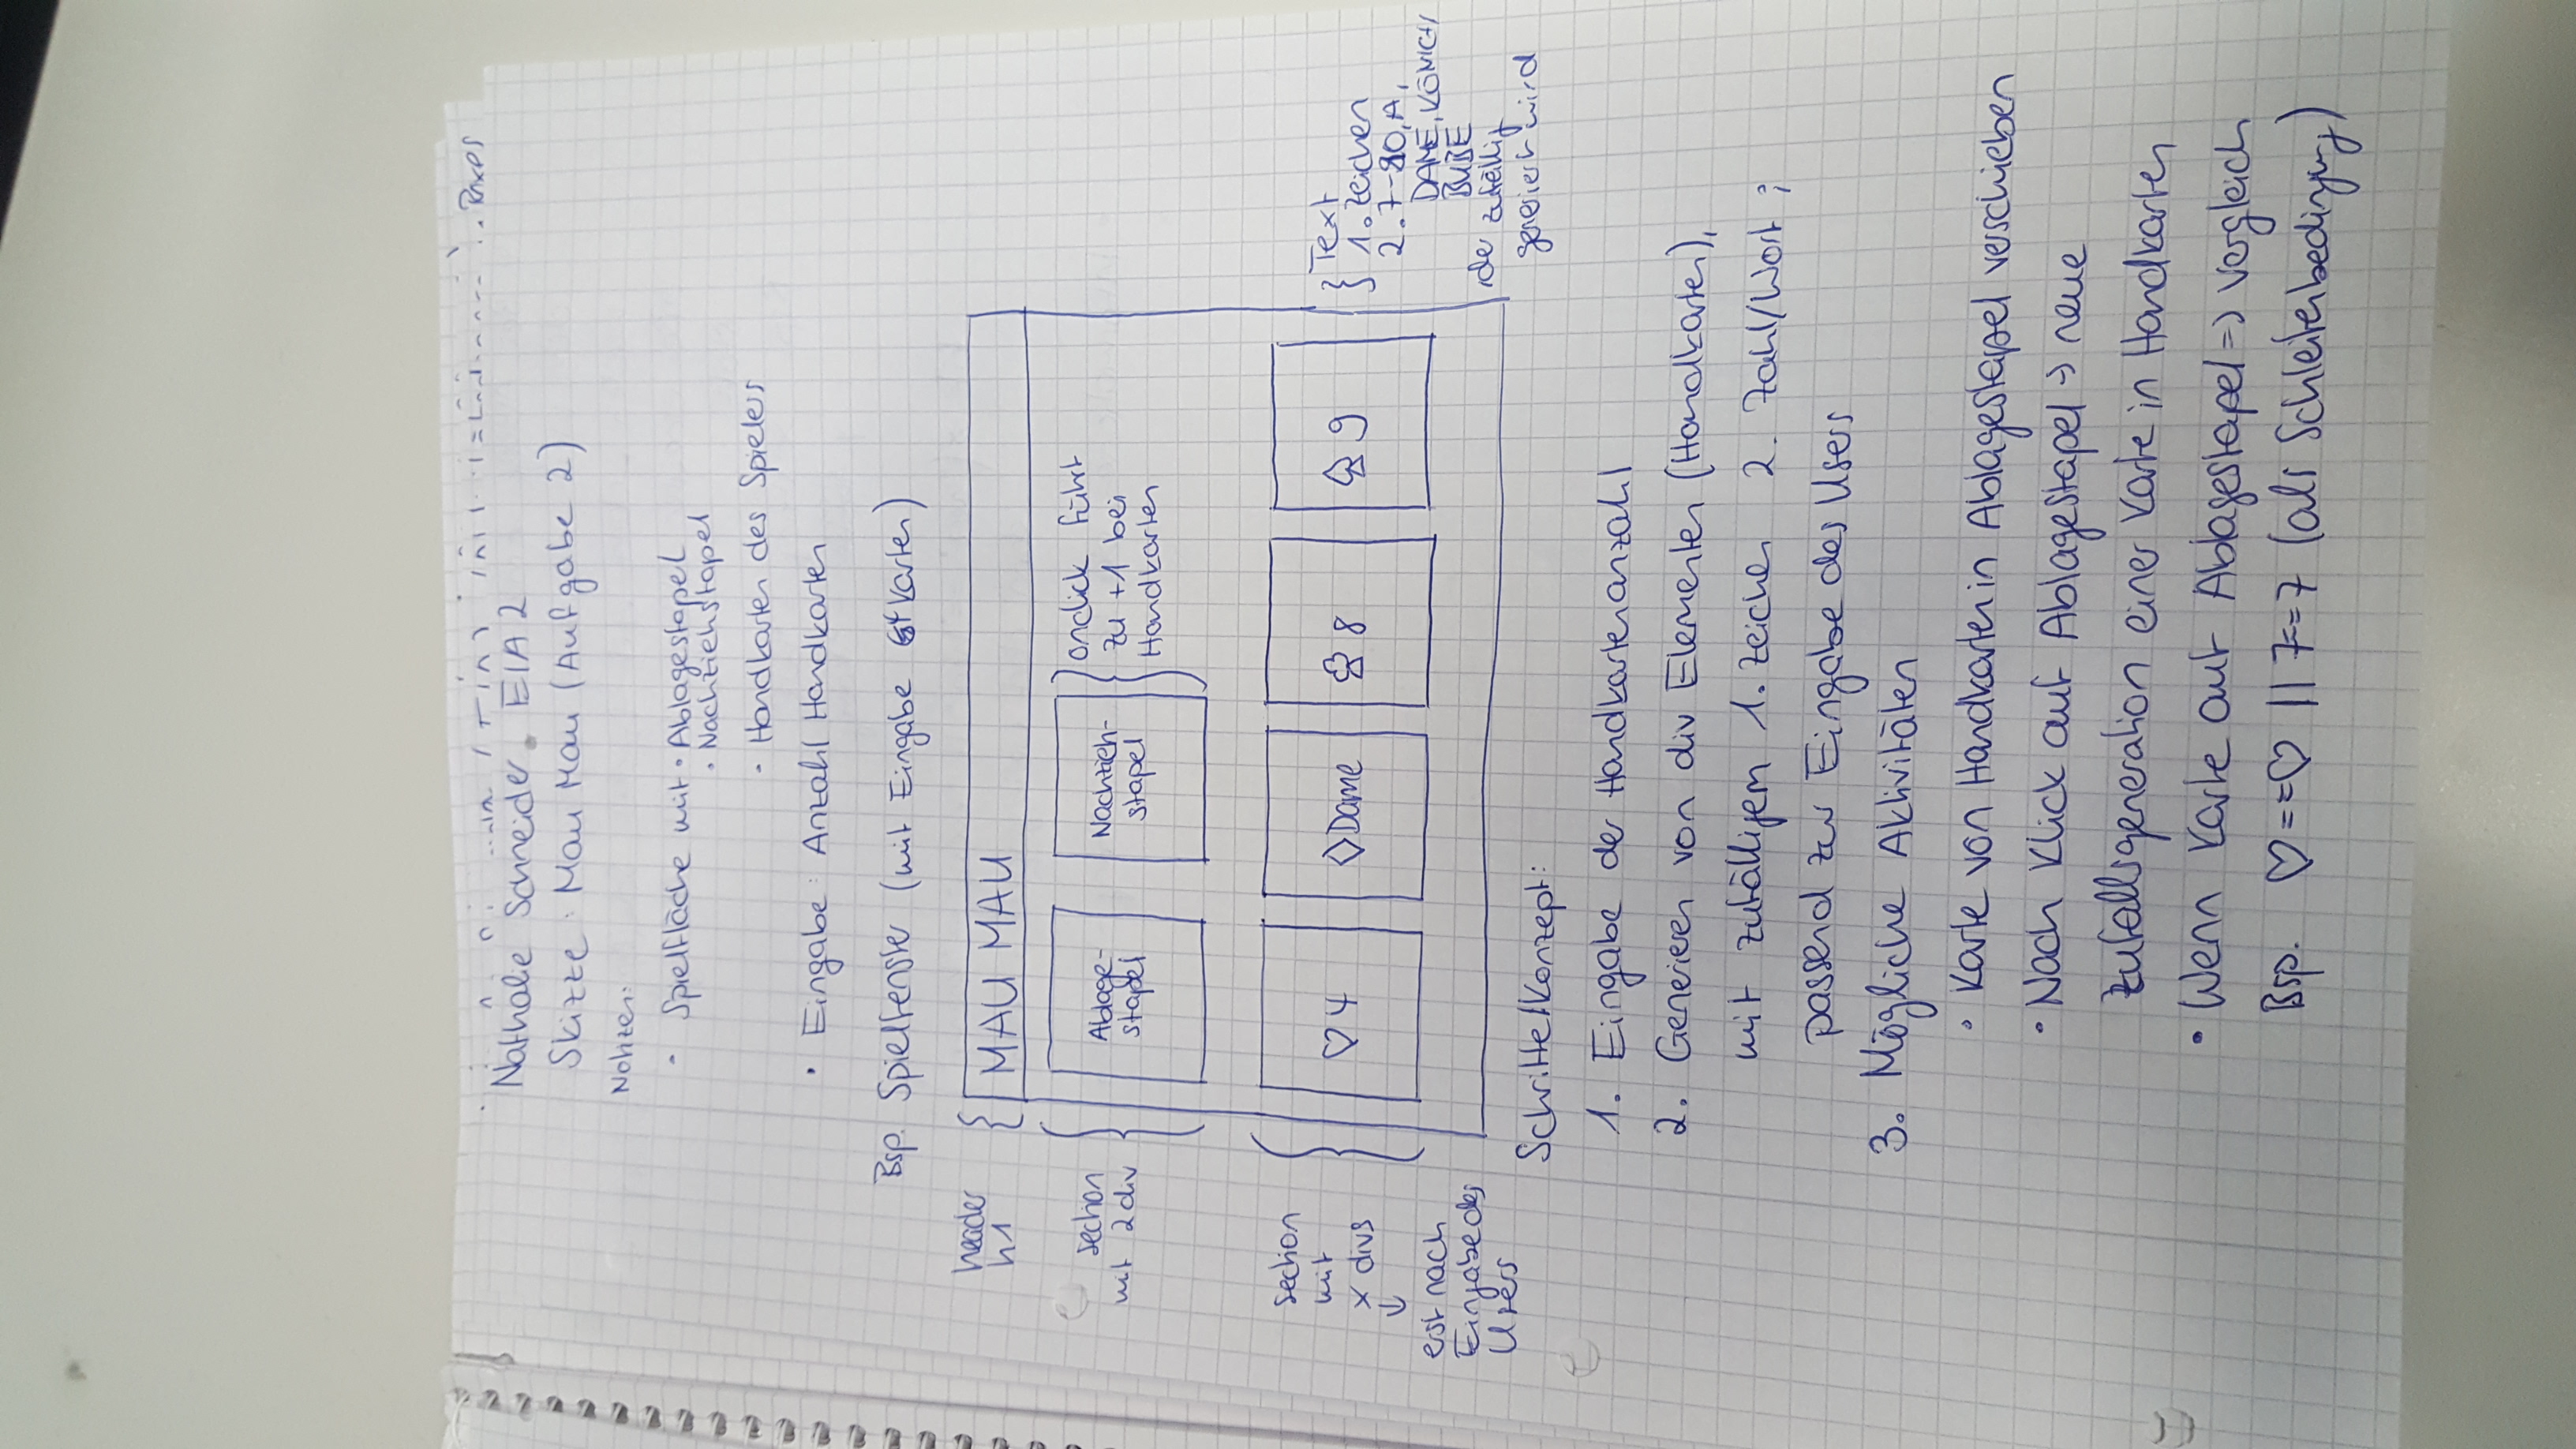 Boxes
Nathalie Schneider. EIA 2
Skizze: Mau Mau (Aufgabe 2)
Notizen:
- Spielfläche mit • Ablagestapel
• Nachziehstapel
• Handkarten des Spielers
• Eingabe: Anzahl Handkarten
Bsp. Spielfenster (mit Eingabe 4 Karten)
header
h1
{ MAU MAU
section
mit 2 div
{ Ablage-
stapel
Nachzieh-
stapel
} onclick führt
zu +1 bei
Handkarten
section
mit
x divs
↓
erst nach
Eingabe des
Users
{ ♡ 4
◇ Dame
♧ 8
♤ 9
} Text
1. Zeichen
2. 7-10, A,
DAME, KÖNIG,
BUBE
, der zufällig
generiert wird
Schritte/Konzept:
1. Eingabe der Handkartenanzahl
2. Generieren von div Elementen (Handkarten),
mit zufälligem 1. Zeichen 2. Zahl/Wort ;
passend zur Eingabe des Users
3. Mögliche Aktivitäten
• Karte von Handkarten in Ablagestapel verschieben
• Nach Klick auf Ablagestapel → neue
Zufallsgeneration einer Karte in Handkarten
• Wenn Karte auf Ablagestapel => Vergleich
Bsp. ♡==♡ || 7==7 (als Schleifenbedingung)